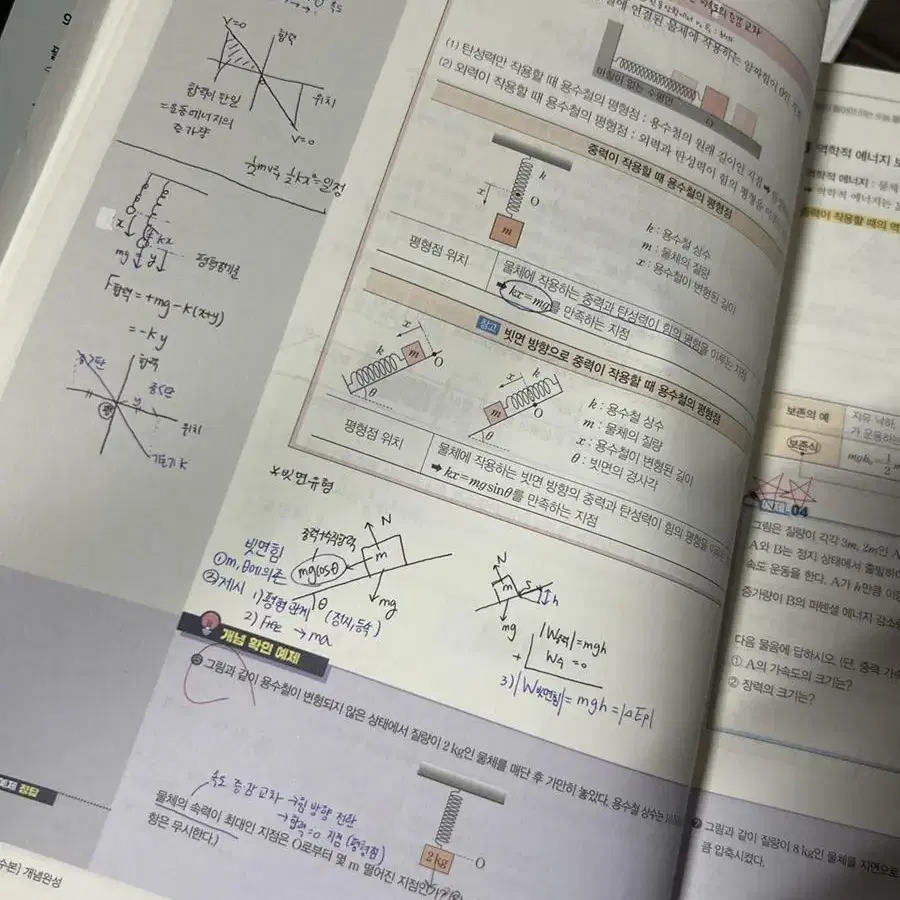 9
V=0
합력
위치
합력이 한일
=운동에너지의
증가량
V=0
½mv²+½kx²=일정
x
kx
mg
y
평형점기준
F합력=+mg-k(x+y)
=-ky
합력
위치
기울기 k
연결된 물체에 작용하는 알짜힘이 0인 지점
(1) 탄성력만 작용할 때 용수철의 평형점 : 용수철의 원래 길이인 지점
(2) 외력이 작용할 때 용수철의 평형점 : 외력과 탄성력이 힘의 평형을
마찰이 없는 수평면
O
중력이 작용할 때 용수철의 평형점
k
x
O
m
k : 용수철 상수
m : 물체의 질량
x : 용수철이 변형된 길이
평형점 위치
물체에 작용하는 중력과 탄성력이 힘의 평형을 이루는 지점
➡ kx=mg를 만족하는 지점
참고 빗면 방향으로 중력이 작용할 때 용수철의 평형점
x
k
m
O
θ
x
k
m
O
θ
k : 용수철 상수
m : 물체의 질량
x : 용수철이 변형된 길이
θ : 빗면의 경사각
평형점 위치
물체에 작용하는 빗면 방향의 중력과 탄성력이 힘의 평형을 이루는
➡ kx=mgsinθ를 만족하는 지점
※빗면유형
빗면힘
①m, θ에 의존
②제시 1)평형관계 (정지, 등속)
2) Free → ma
중력+수직항력
mgcosθ
N
m
mg
θ
N
m
S
h
mg
|W중력|=mgh
+ W수 =0
3)|W빗면힘|=mgh=|ΔEp|
개념 확인 예제
그림과 같이 용수철이 변형되지 않은 상태에서 질량이 2 kg인 물체를 매단 후 가만히 놓았다. 용수철 상수는
속도 증감 교차 →힘 방향 전환
→합력=0 지점 (평형점)
물체의 속력이 최대인 지점은 O로부터 몇 m 떨어진 지점인가?
항은 무시한다.)
2 kg
O
정답
개념완성
역학적 에너지 보
역학적 에너지 : 물체
➡ 역학적 에너지는
중력이 작용할 때의 역
보존의 예
자유 낙하,
가 운동하는
보존식
예제 04
그림은 질량이 각각 3m, 2m인 A
A와 B는 정지 상태에서 출발하여
속도 운동을 한다. A가 h만큼 이동
증가량이 B의 퍼텐셜 에너지 감소
다음 물음에 답하시오. (단, 중력 가속
① A의 가속도의 크기는?
② 장력의 크기는?
그림과 같이 질량이 8 kg인 물체를 지면으로
큼 압축시켰다.